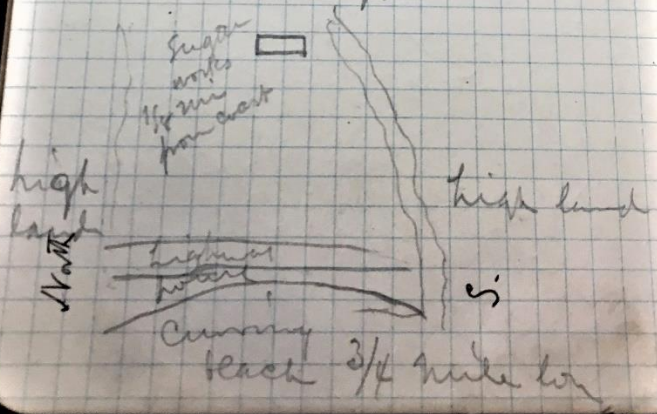 Sugar
works
1/4 mi
from coast
high
land
high land
North
highway
S.
Curving
beach 3/4 mile lon